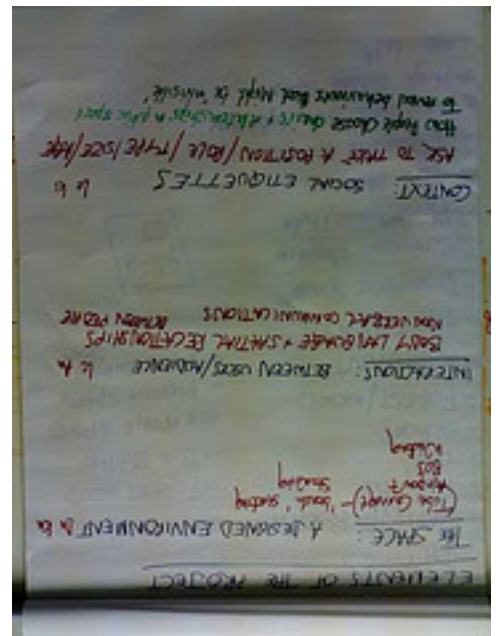 ELEMENTS OF THE PROJECT
THE SPACE: A DESIGNED ENVIRONMENT
(Tube Carriage) - "Seats" Seating
Airport Standing
BUS
Walking
INTERACTIONS: BETWEEN USERS/AUDIENCE
BODY LANGUAGE & SPATIAL RELATIONSHIPS
NON VERBAL COMMUNICATIONS BETWEEN PEOPLE
CONTEXT: SOCIAL ETIQUETTES
ASK TO TAKE A POSITION/ROLE/TYPE/SIZE/
How People Choose & relationships in space
To reveal behaviours that might be 'invisible'